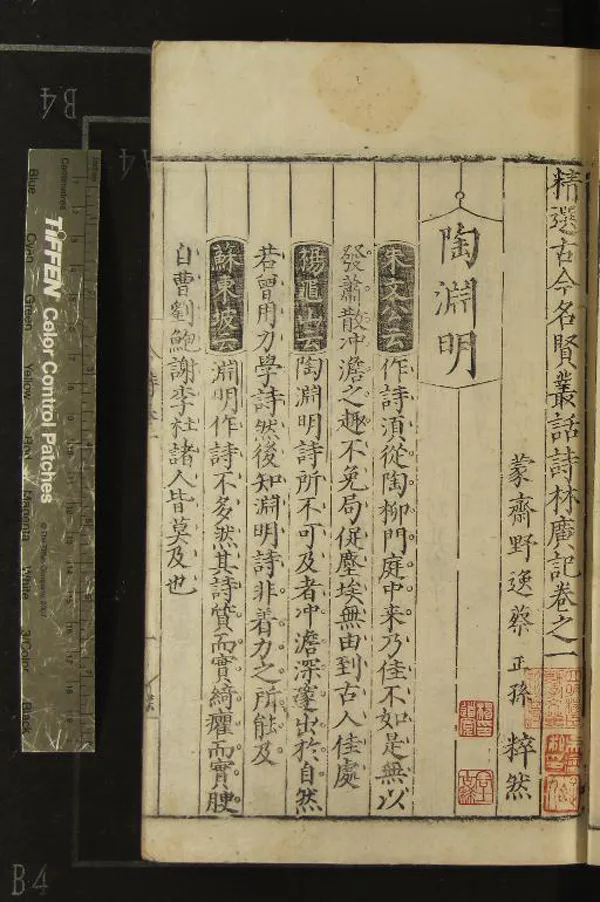 精選古今名賢叢話詩林廣記卷之一
蒙齋野逸蔡正孫粹然
陶淵明
朱文公云作詩須從陶柳門庭中来乃佳不如是無以
發蕭散冲澹之趣不免局促塵埃無由到古人佳處
楊龜山云陶淵明詩所不可及者冲澹深邃出於自然
若曾用力學詩然後知淵明詩非着力之所能及
蘇東坡云淵明作詩不多然其詩質而實綺癯而實腴
自曹劉鮑謝李杜諸人皆莫及也
B4
A4
B4
Inches
Centimetres
TIFFEN Color Control Patches
Blue
Cyan
Green
Yellow
Red
Magenta
White
3/Color
Black